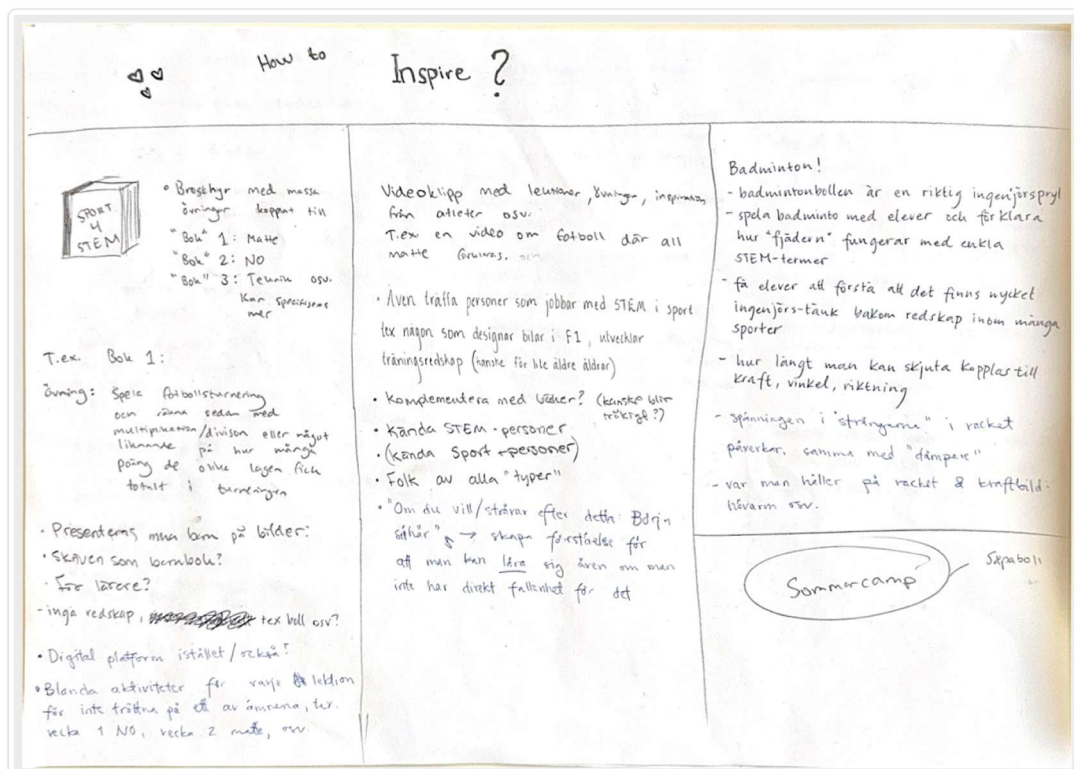 How to Inspire?
SPORT
4
STEM
• Broschyr med massa
övningar kopplat till
"Bok" 1: Matte
"Bok" 2: NO
"Bok" 3: Teknik osv.
Kan specificeras
mer
T.ex. Bok 1:
övning: Spela fotbollsturnering
och räkna sedan med
multiplikation/divison eller något
liknande på hur många
poäng de olika lagen fick
totalt i turneringen
• Presenteras mua barn på bilder:
• Skriven som barnbok?
• För lärare?
- inga redskap, tex boll osv?
• Digital platform istället/också?
• Blanda aktiviteter för varje lektion
för inte tröttna på ett av ämnena, tex.
vecka 1 NO, vecka 2 matte, osv
Videoklipp med lektioner, övningar, inspiration
från atleter osv.
T.ex en video om fotboll där all
matte förklaras.
• Även träffa personer som jobbar med STEM i sport
tex någon som designar bilar i F1, utvecklar
träningsredskap (kanske för lite äldre åldrar)
• Komplementera med böcker? (kanske blir
tråkigt?)
• Kända STEM-personer
• (kända Sport-personer)
• Folk av alla "typer"
• "Om du vill/strävar efter detta: Börja
såhär" → skapa förståelse för
att man kan lära sig även om man
inte har direkt fallenhet för det
Badminton!
- badmintonbollen är en riktig ingenjörspryl
- spela badminto med elever och förklara
hur "fjädern" fungerar med enkla
STEM-termer
- få elever att förstå att det finns mycket
ingenjörs-tänk bakom redskap inom många
sporter
- hur långt man kan skjuta kopplas till
kraft, vinkel, riktning
- spänningen i "strängarna" i racket
påverkar, samma med "dämpare"
- var man håller på racket & kraftbild:
hävarm osv.
Sommarcamp